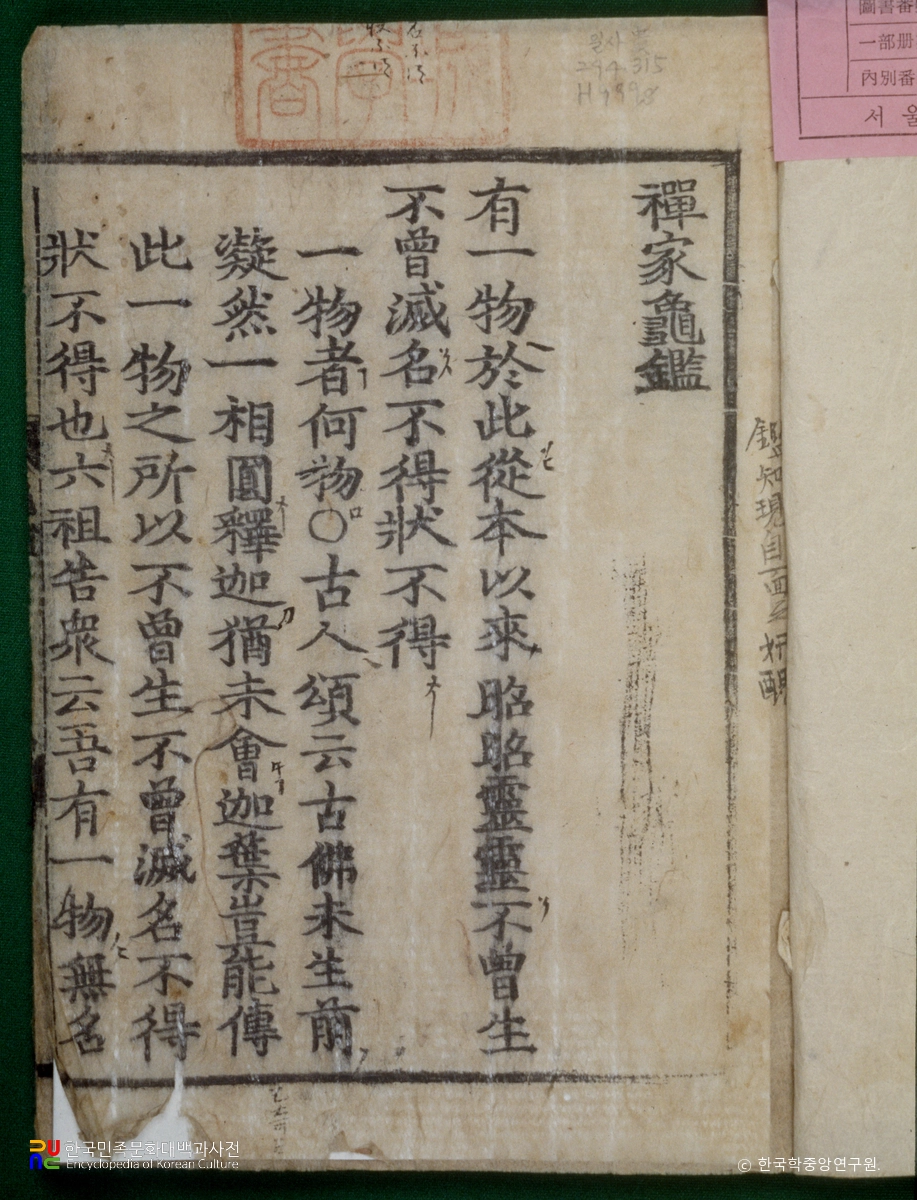 禪家龜鑑
有一物於此從本以來昭昭靈靈不曾生
不曾滅名不得狀不得
一物者何物〇古人頌云古佛未生前
凝然一相圓釋迦猶未會迦葉豈能傳
此一物之所以不曾生不曾滅名不得
狀不得也六祖告衆云吾有一物無名
圖書番
一部册
內別番
서울
294.315
鑑知現自面之妍醜
한국민족문화대백과사전
Encyclopedia of Korean Culture
© 한국학중앙연구원